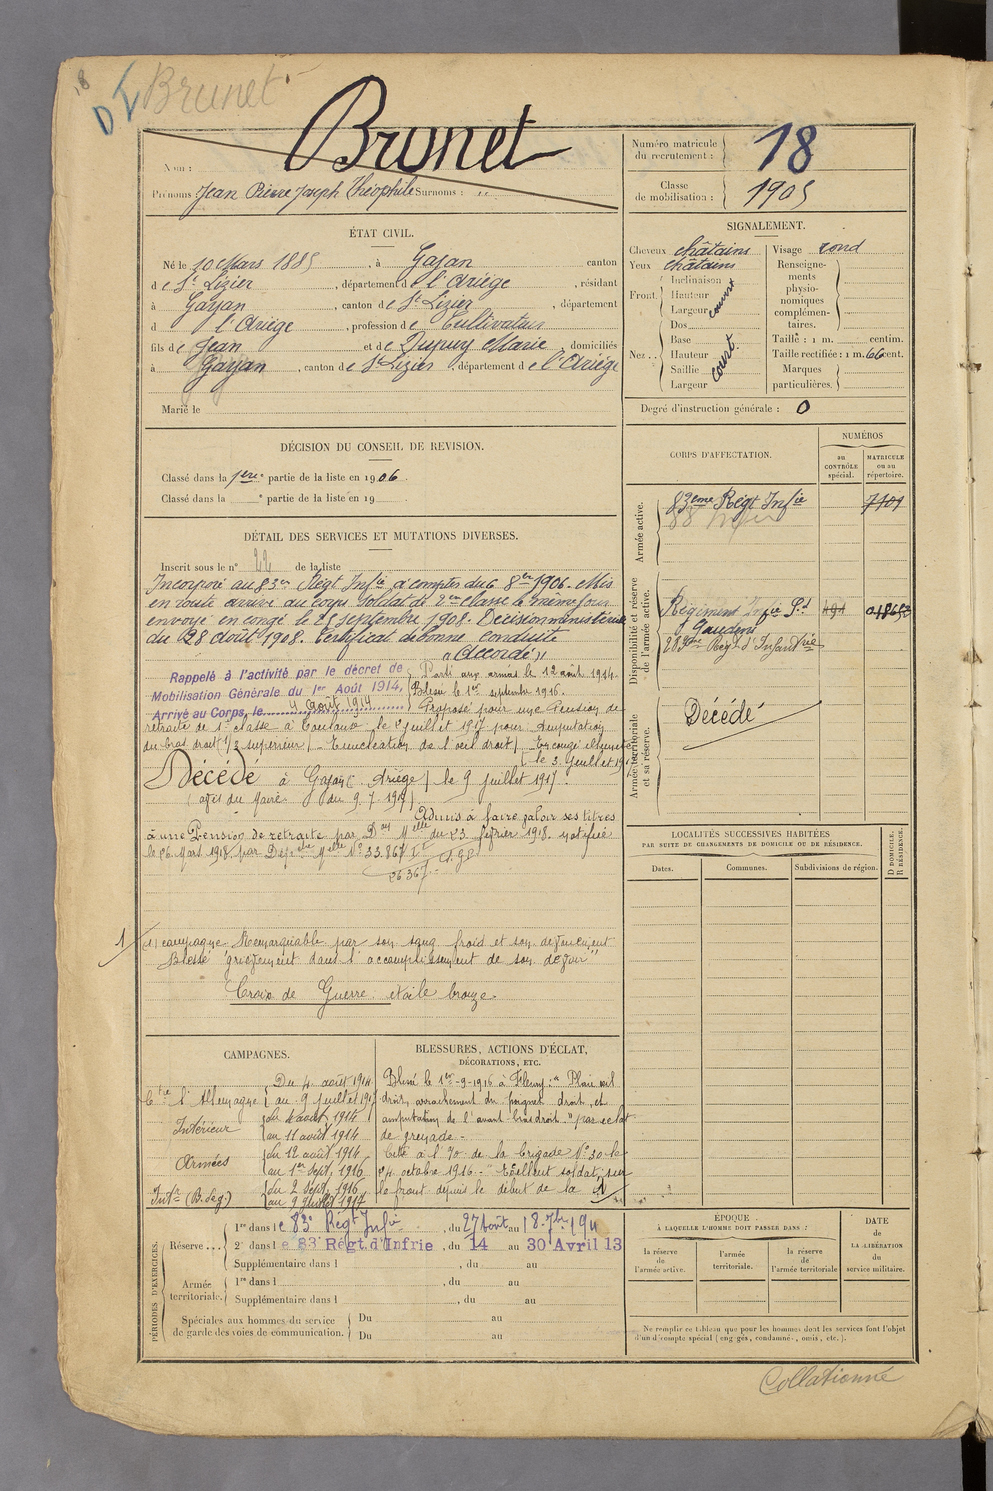 18
D I Brunet
Brunet
Nom :
Prénoms : Jean Pierre Joseph Théophile Surnoms : "
Numéro matricule du recrutement : 18
Classe de mobilisation : 1905
ÉTAT CIVIL.
Né le 10 Mars 1885, à Gajan, canton
de St Lizier, département de l'Ariège, résidant
à Gajan, canton de St Lizier, département
d l'Ariège, profession de Cultivateur
fils de Jean et de Dupuy Marie, domiciliés
à Gajan, canton de St Lizier, département de l'Ariège
Marié le
SIGNALEMENT.
Cheveux châtains
Yeux châtains
Front. Inclinaison
Hauteur
Largeur couvert
Nez.. Dos
Base
Hauteur
Saillie court.
Largeur
Visage rond
Renseignements physionomiques complémentaires.
Taille : 1 m. centim.
Taille rectifiée : 1 m. 66 cent.
Marques particulières.
Degré d'instruction générale : 0
DÉCISION DU CONSEIL DE REVISION.
Classé dans la 1ère partie de la liste en 1906.
Classé dans la e partie de la liste en 19
DÉTAIL DES SERVICES ET MUTATIONS DIVERSES.
Inscrit sous le n° 22 de la liste
Incorporé au 83e Régt Infie à compter du 6 8bre 1906. Mis
en route arrivé au corps soldat de 2me classe le même jour
envoyé en congé le 25 septembre 1908. Décision ministérielle
du 28 août 1908. Certificat de bonne conduite
"Accordé"
Rappelé à l'activité par le décret de
Mobilisation Générale du 1er Août 1914,
Arrivé au Corps, le 4 Août 1914
Parti aux armées le 12 août 1914.
Blessé le 1er septembre 1916.
Proposé pour une Pension de
retraite de 1e classe à Toulouse le 2 juillet 1917 pour Amputation
du bras droit 1/3 supérieur) - Enucléation de l'oeil droit) En congé illimité
le 3 Juillet 1917
Décédé à Gajan (Ariège) le 9 juillet 1917.
(avis du Maire du 9.7.1917)
Admis à faire valoir ses titres
à une Pension de retraite par Don Mlle du 23 février 1918. notifiée
le 26 Mars 1918 par Dépêche Mlle N° 33.867
26367
1 (1) campagne. Remarquable par son sang froid et son dévouement
Blessé grièvement dans l'accomplissement de son devoir"
Croix de Guerre étoile bronze.
CORPS D'AFFECTATION.
NUMÉROS
au CONTRÔLE spécial.
MATRICULE ou au répertoire.
Armée active.
83eme Régt Infie 7109
88 Infie
Disponibilité et réserve de l'armée active.
Régiment Infie St Gaudens 494
283me Régt d'Infanterie
Armée territoriale et sa réserve.
Décédé
LOCALITÉS SUCCESSIVES HABITÉES
PAR SUITE DE CHANGEMENTS DE DOMICILE OU DE RÉSIDENCE.
Dates.
Communes.
Subdivisions de région.
D DOMICILE. R RÉSIDENCE.
CAMPAGNES.
Ctre l'Allemagne Du 4 août 1914
au 9 juillet 1917
Intérieur du 4 août 1914
au 11 août 1914
Armées du 12 août 1914
au 1er Sept. 1916
Intr (B. de g.) du 2 Sept. 1916
au 9 Juillet 1917
BLESSURES, ACTIONS D'ÉCLAT,
DÉCORATIONS, ETC.
Blessé le 1er-9-1916 à Fleury : "Plaie oeil
droit, arrachement du poignet droit, et
amputation de l'avant-bras droit" par éclat
de grenade.-
Cité à l'O. de la brigade N° 30 le
24 octobre 1916 - "Excellent soldat, sur
le front depuis le début de la (1)
PÉRIODES D'EXERCICES.
Réserve... 1re dans le 83e Régt Infie, du 27 Août au 18-7bre 1911
2e dans le 83e Régt d'Infrie, du 14 au 30 Avril 13
Supplémentaire dans l , du au
Armée territoriale. 1re dans l , du au
Supplémentaire dans l , du au
Spéciales aux hommes du service de garde des voies de communication. Du au
Du au
ÉPOQUE
À LAQUELLE L'HOMME DOIT PASSER DANS :
la réserve de l'armée active.
l'armée territoriale.
la réserve de l'armée territoriale
DATE de LA LIBÉRATION du service militaire.
Ne remplir ce tableau que pour les hommes dont les services font l'objet
d'un décompte spécial (engagés, condamnés, omis, etc.).
Collationné